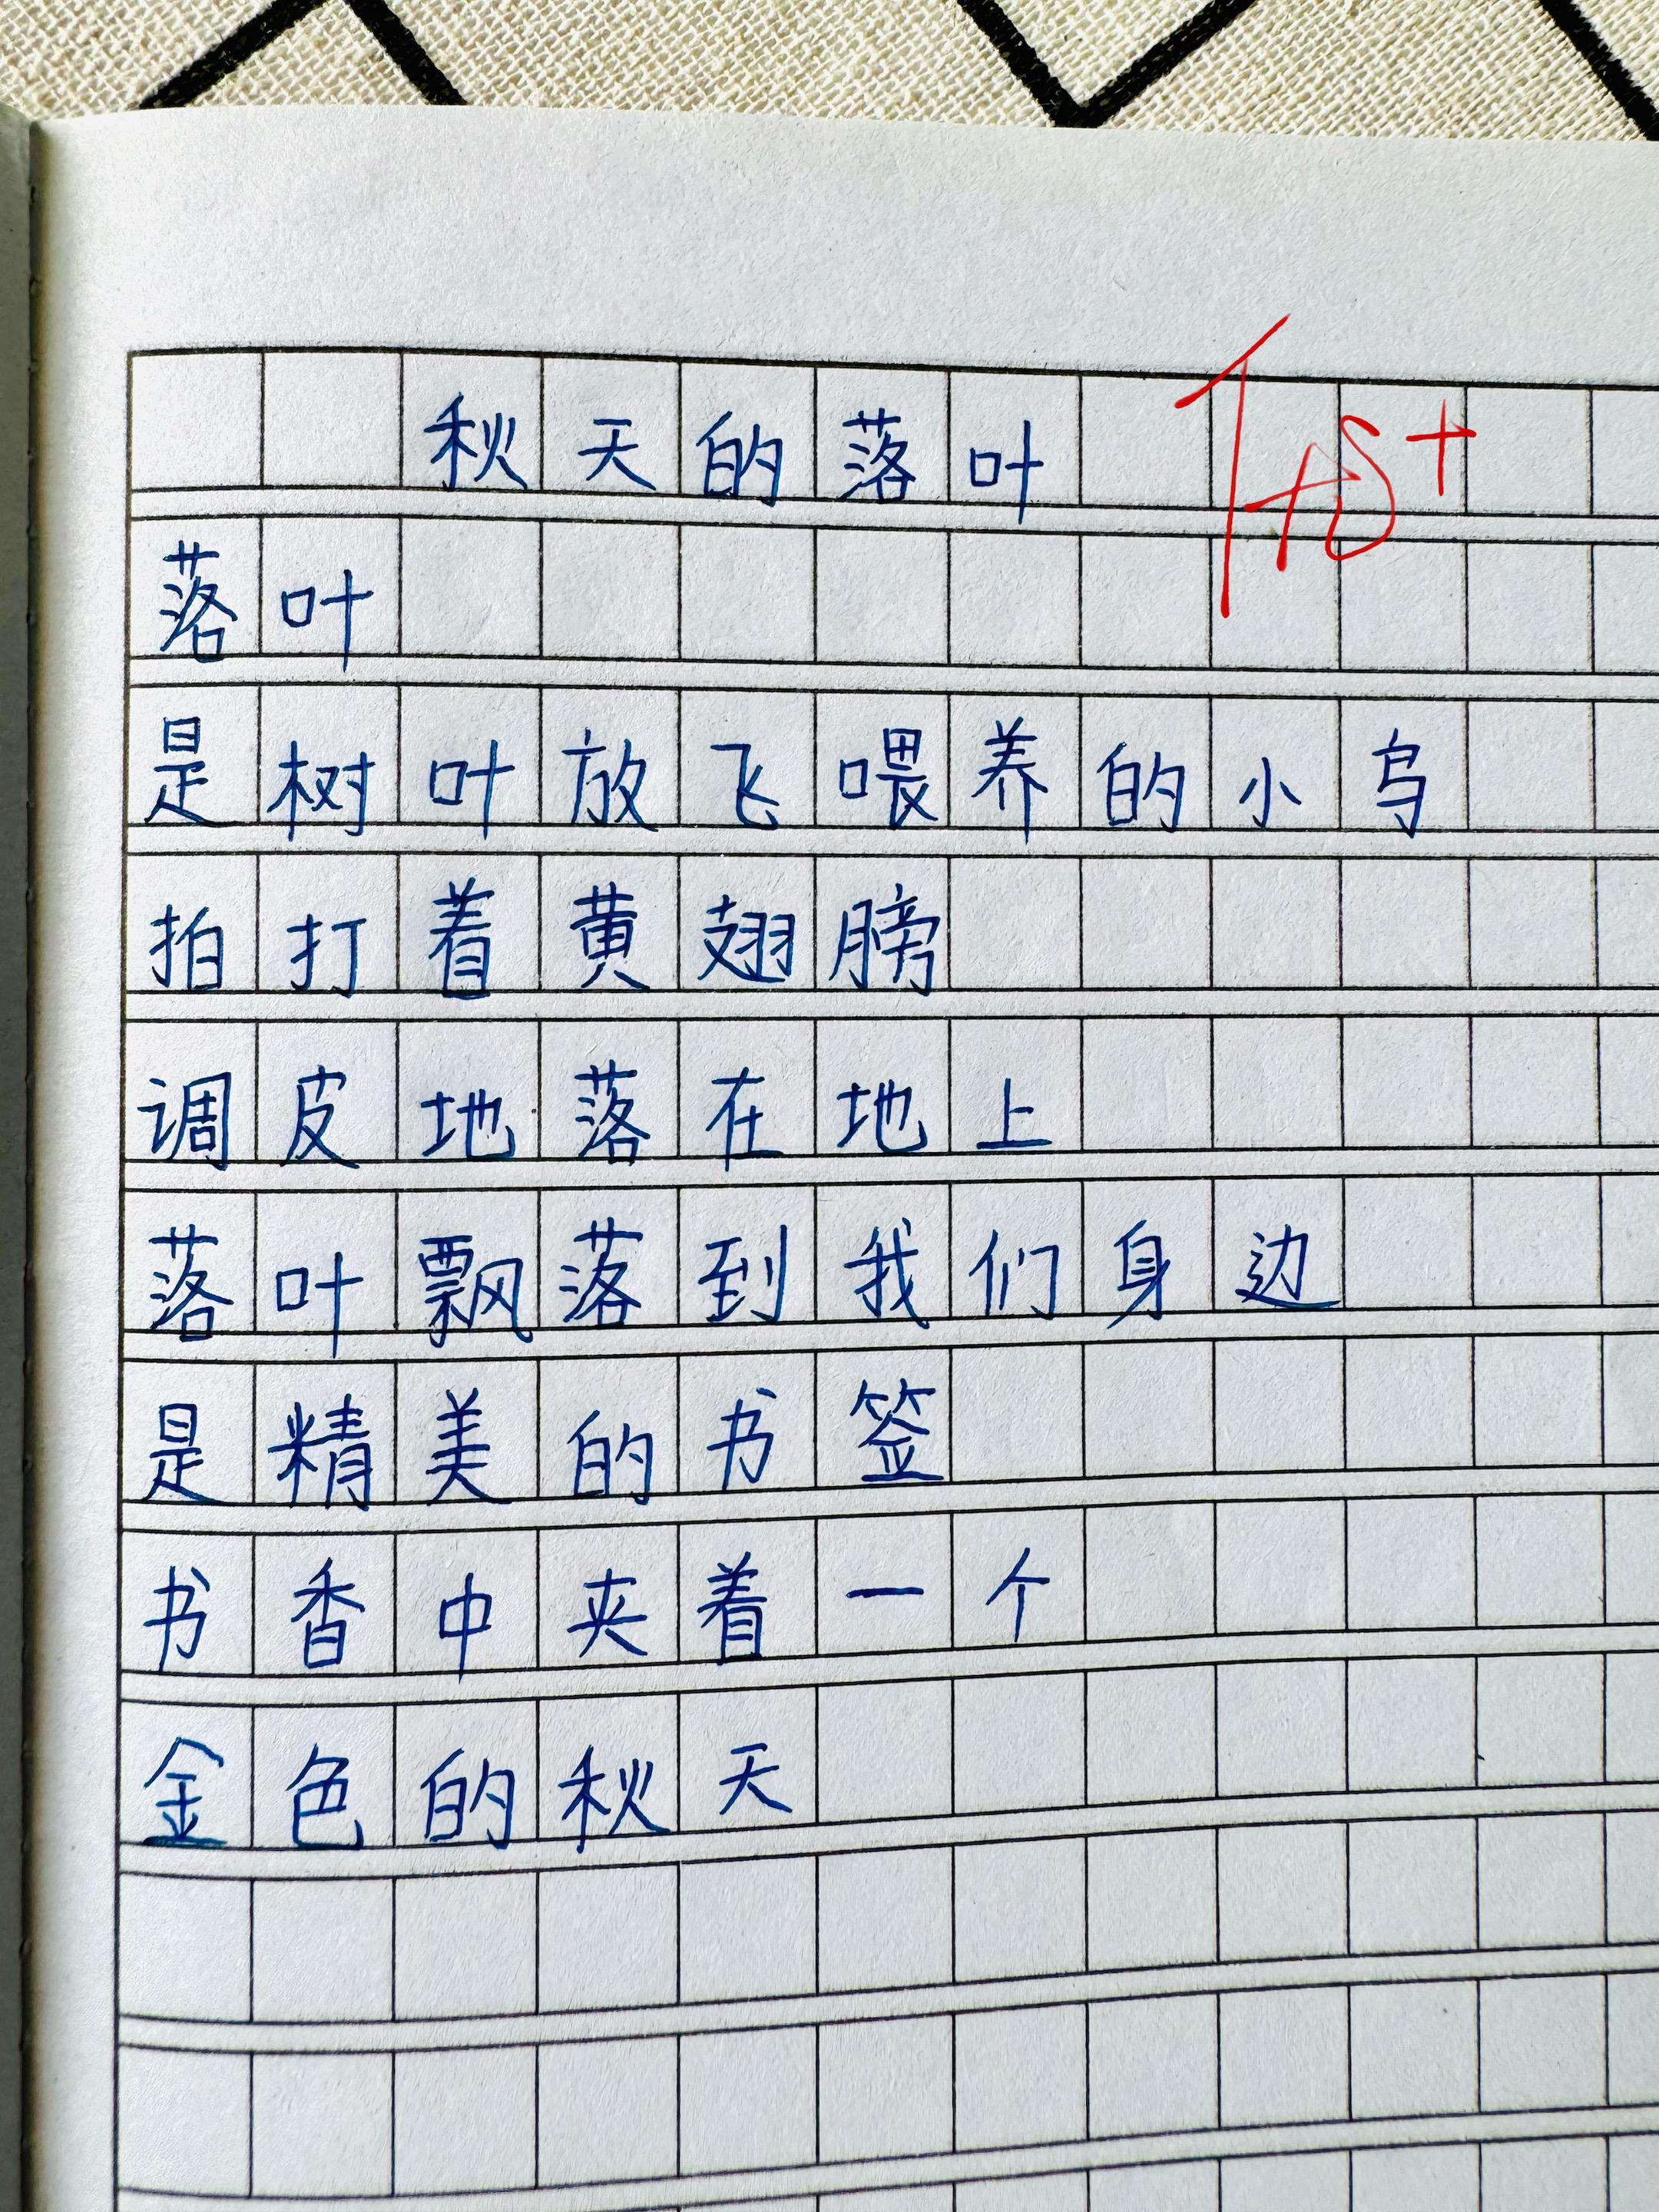 秋天的落叶
落叶
是树叶放飞喂养的小鸟
拍打着黄翅膀
调皮地落在地上
落叶飘落到我们身边
是精美的书签
书香中夹着一个
金色的秋天